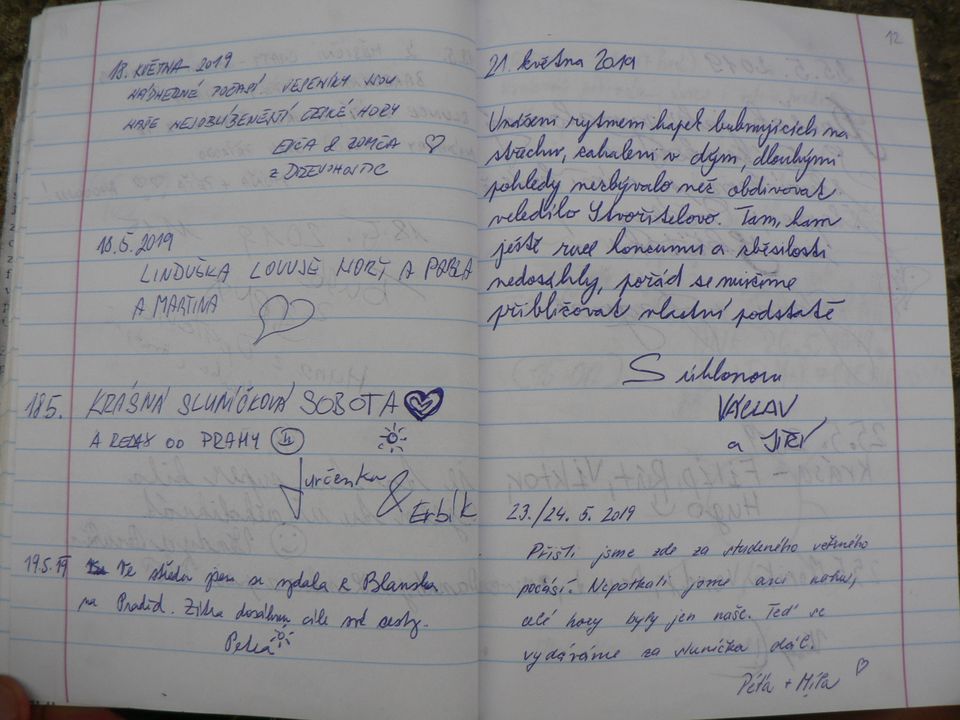 18. KVĚTNA 2019
NÁDHERNÉ POČASÍ JESENÍKY JSOU
NAŠE NEJOBLÍBENĚJŠÍ ČESKÉ HORY
EDČA & TOMČA
Z
18.5. 2019
LINDUŠKA LOVUJE HORY A PAVLA
A MARTINA
18.5. KRÁSNÁ SLUNÍČKOVÁ SOBOTA
A RELAX OD PRAHY
Jurčenka
& Erbík
19.5.19 Ve středu jsem se vydala z Blanska
na Praděd. Zítra dosáhnu cíle své cesty.
Petra
12
21. května 2019
Unášeni rytmem kapek bubnujících na
střechu, zahaleni v dým, dlouhými
pohledy nezbývalo než obdivovat
veledílo Stvořitelovo. Tam, kam
ještě ruce konzumu a zběsilosti
nedosáhly, pořád se můžeme
přibližovat vlastní podstatě
S úklonou
VÁCLAV
a JIŘÍ
23./24. 5. 2019
Přišli jsme zde za studeného větrného
počásí. Nepotkali jsme ani nohu,
celé hory byly jen naše. Teď se
vydáváme za sluníčka dál.
Péťa + Míťa